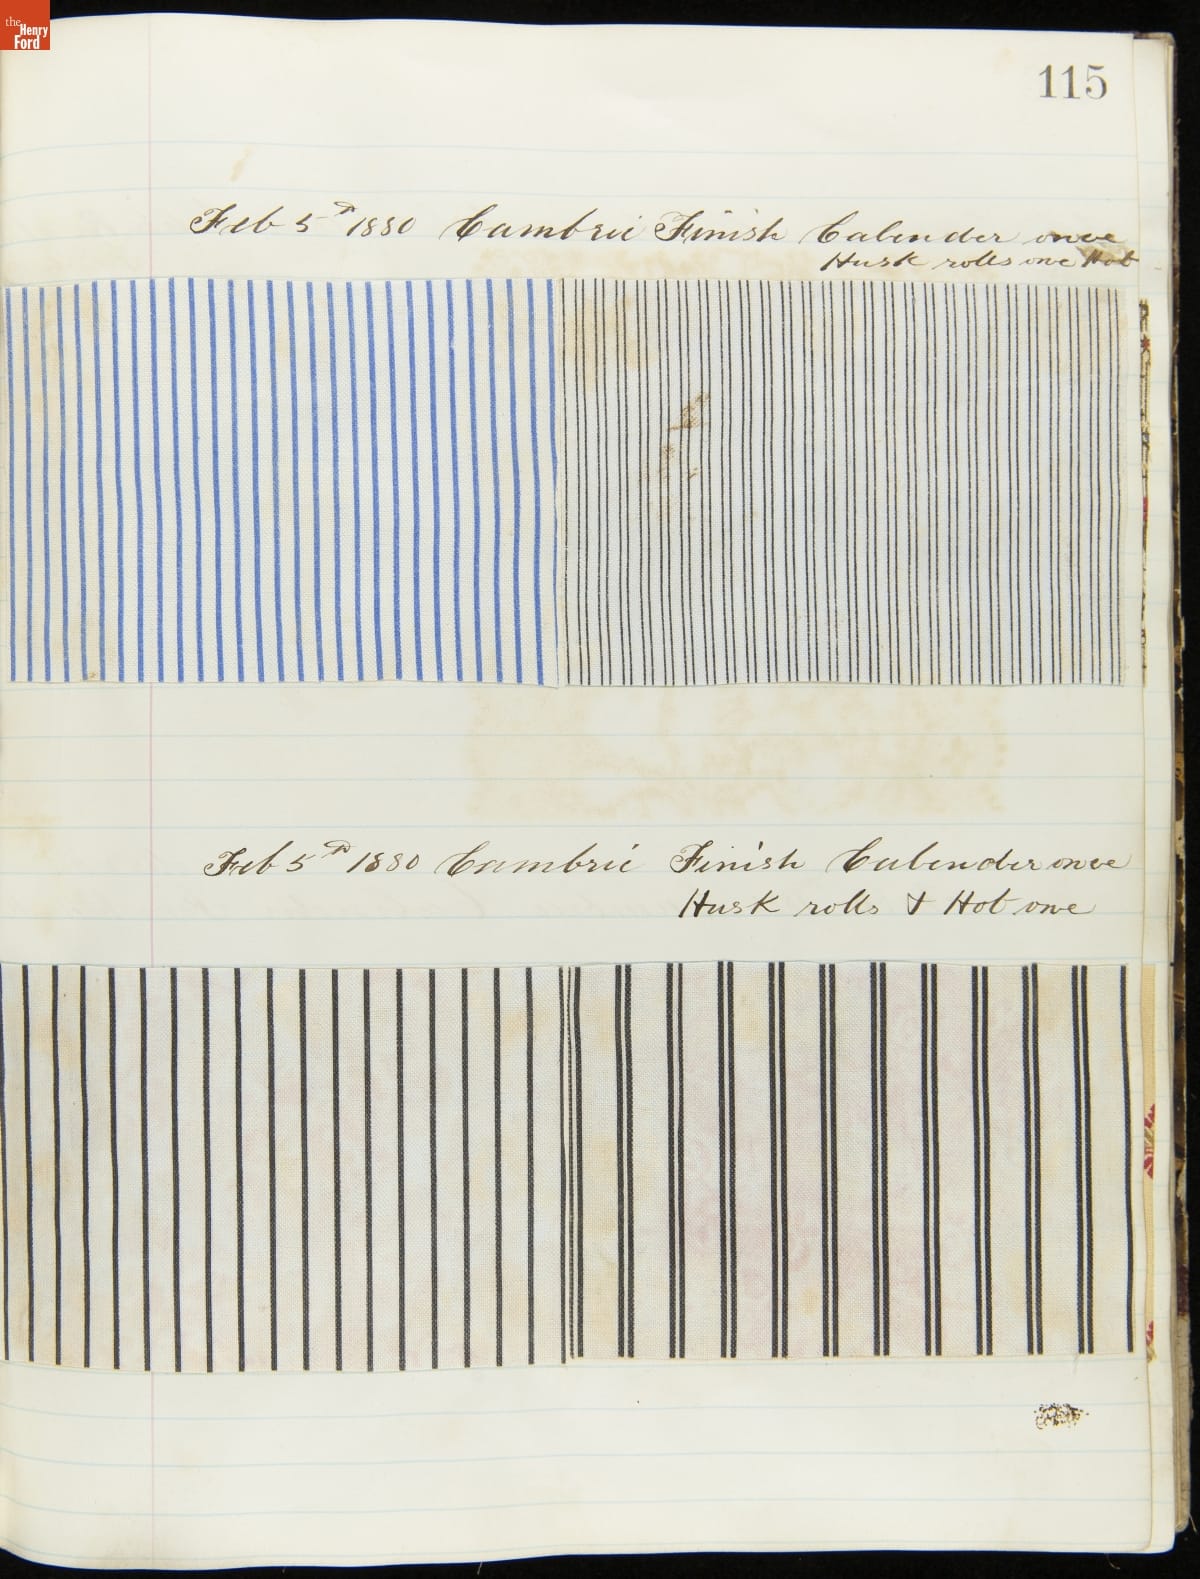 the
Henry
Ford
115
Feb 5th 1880 Cambric Finish Calender once
Husk rolls one Hot
Feb 5th 1880 Cambric Finish Calender once
Husk rolls & Hot one